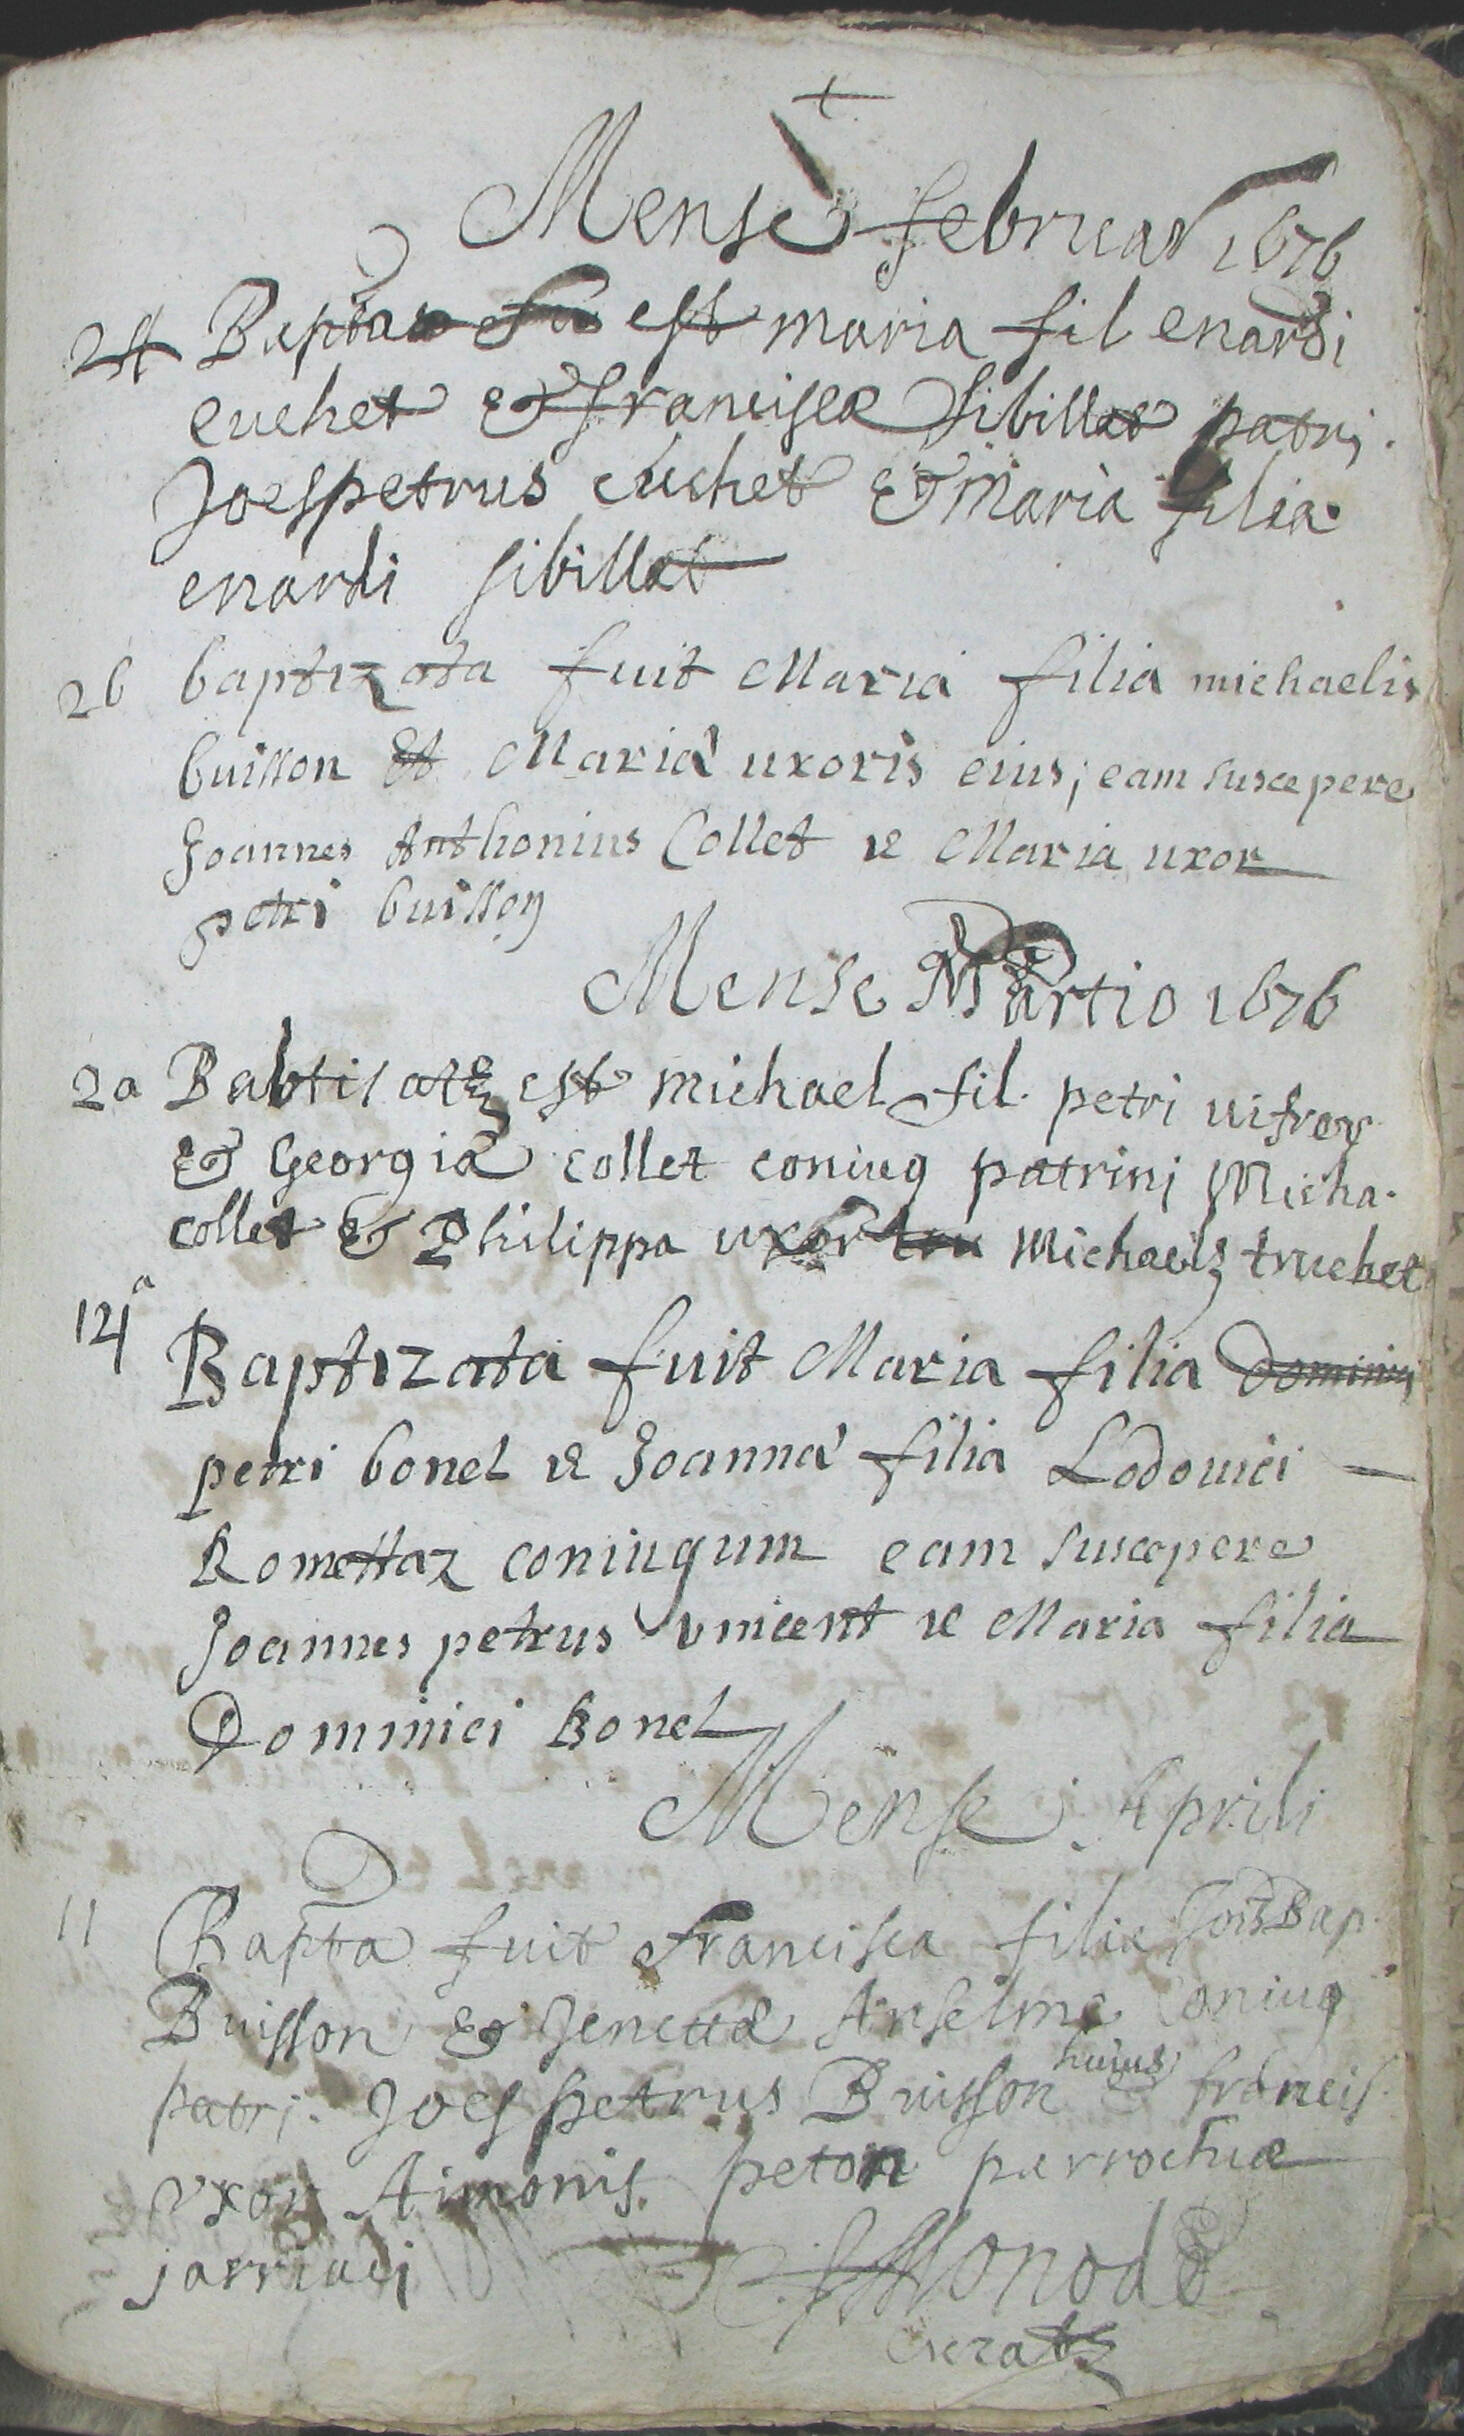 +
Mense februar 1676
24 Bapta est maria fil enardi
cuchet & franciscæ sibillat patri.
Joes petrus cuchet & Maria filia
enardi sibillat
26 baptizata fuit Maria filia michaelis
buisson et Mariæ uxoris eius; eam suscepere
Joannes Anthonius Collet et Maria uxor
petri buisson
Mense Martio 1676
2a Babtisatus est michael fil. petri
& Georgiæ collet coniug patrini Micha.
collet & Philippa uxor Michaelis truchet
14a Baptizata fuit Maria filia
petri bonel et Joannæ filia Lodovici
Romettaz coniugum eam suscepere
Joannes petrus vincent et Maria filia
Dominici Bonel
Mense Aprili
11 Bapta fuit Francisca filia Jois Bap.
Buisson & Jenettæ Anselme Coniug
patri. Joes petrus Buisson huius & francis.
vxor Aimonis peton parrochiæ
jarriaci J Monod
curatus